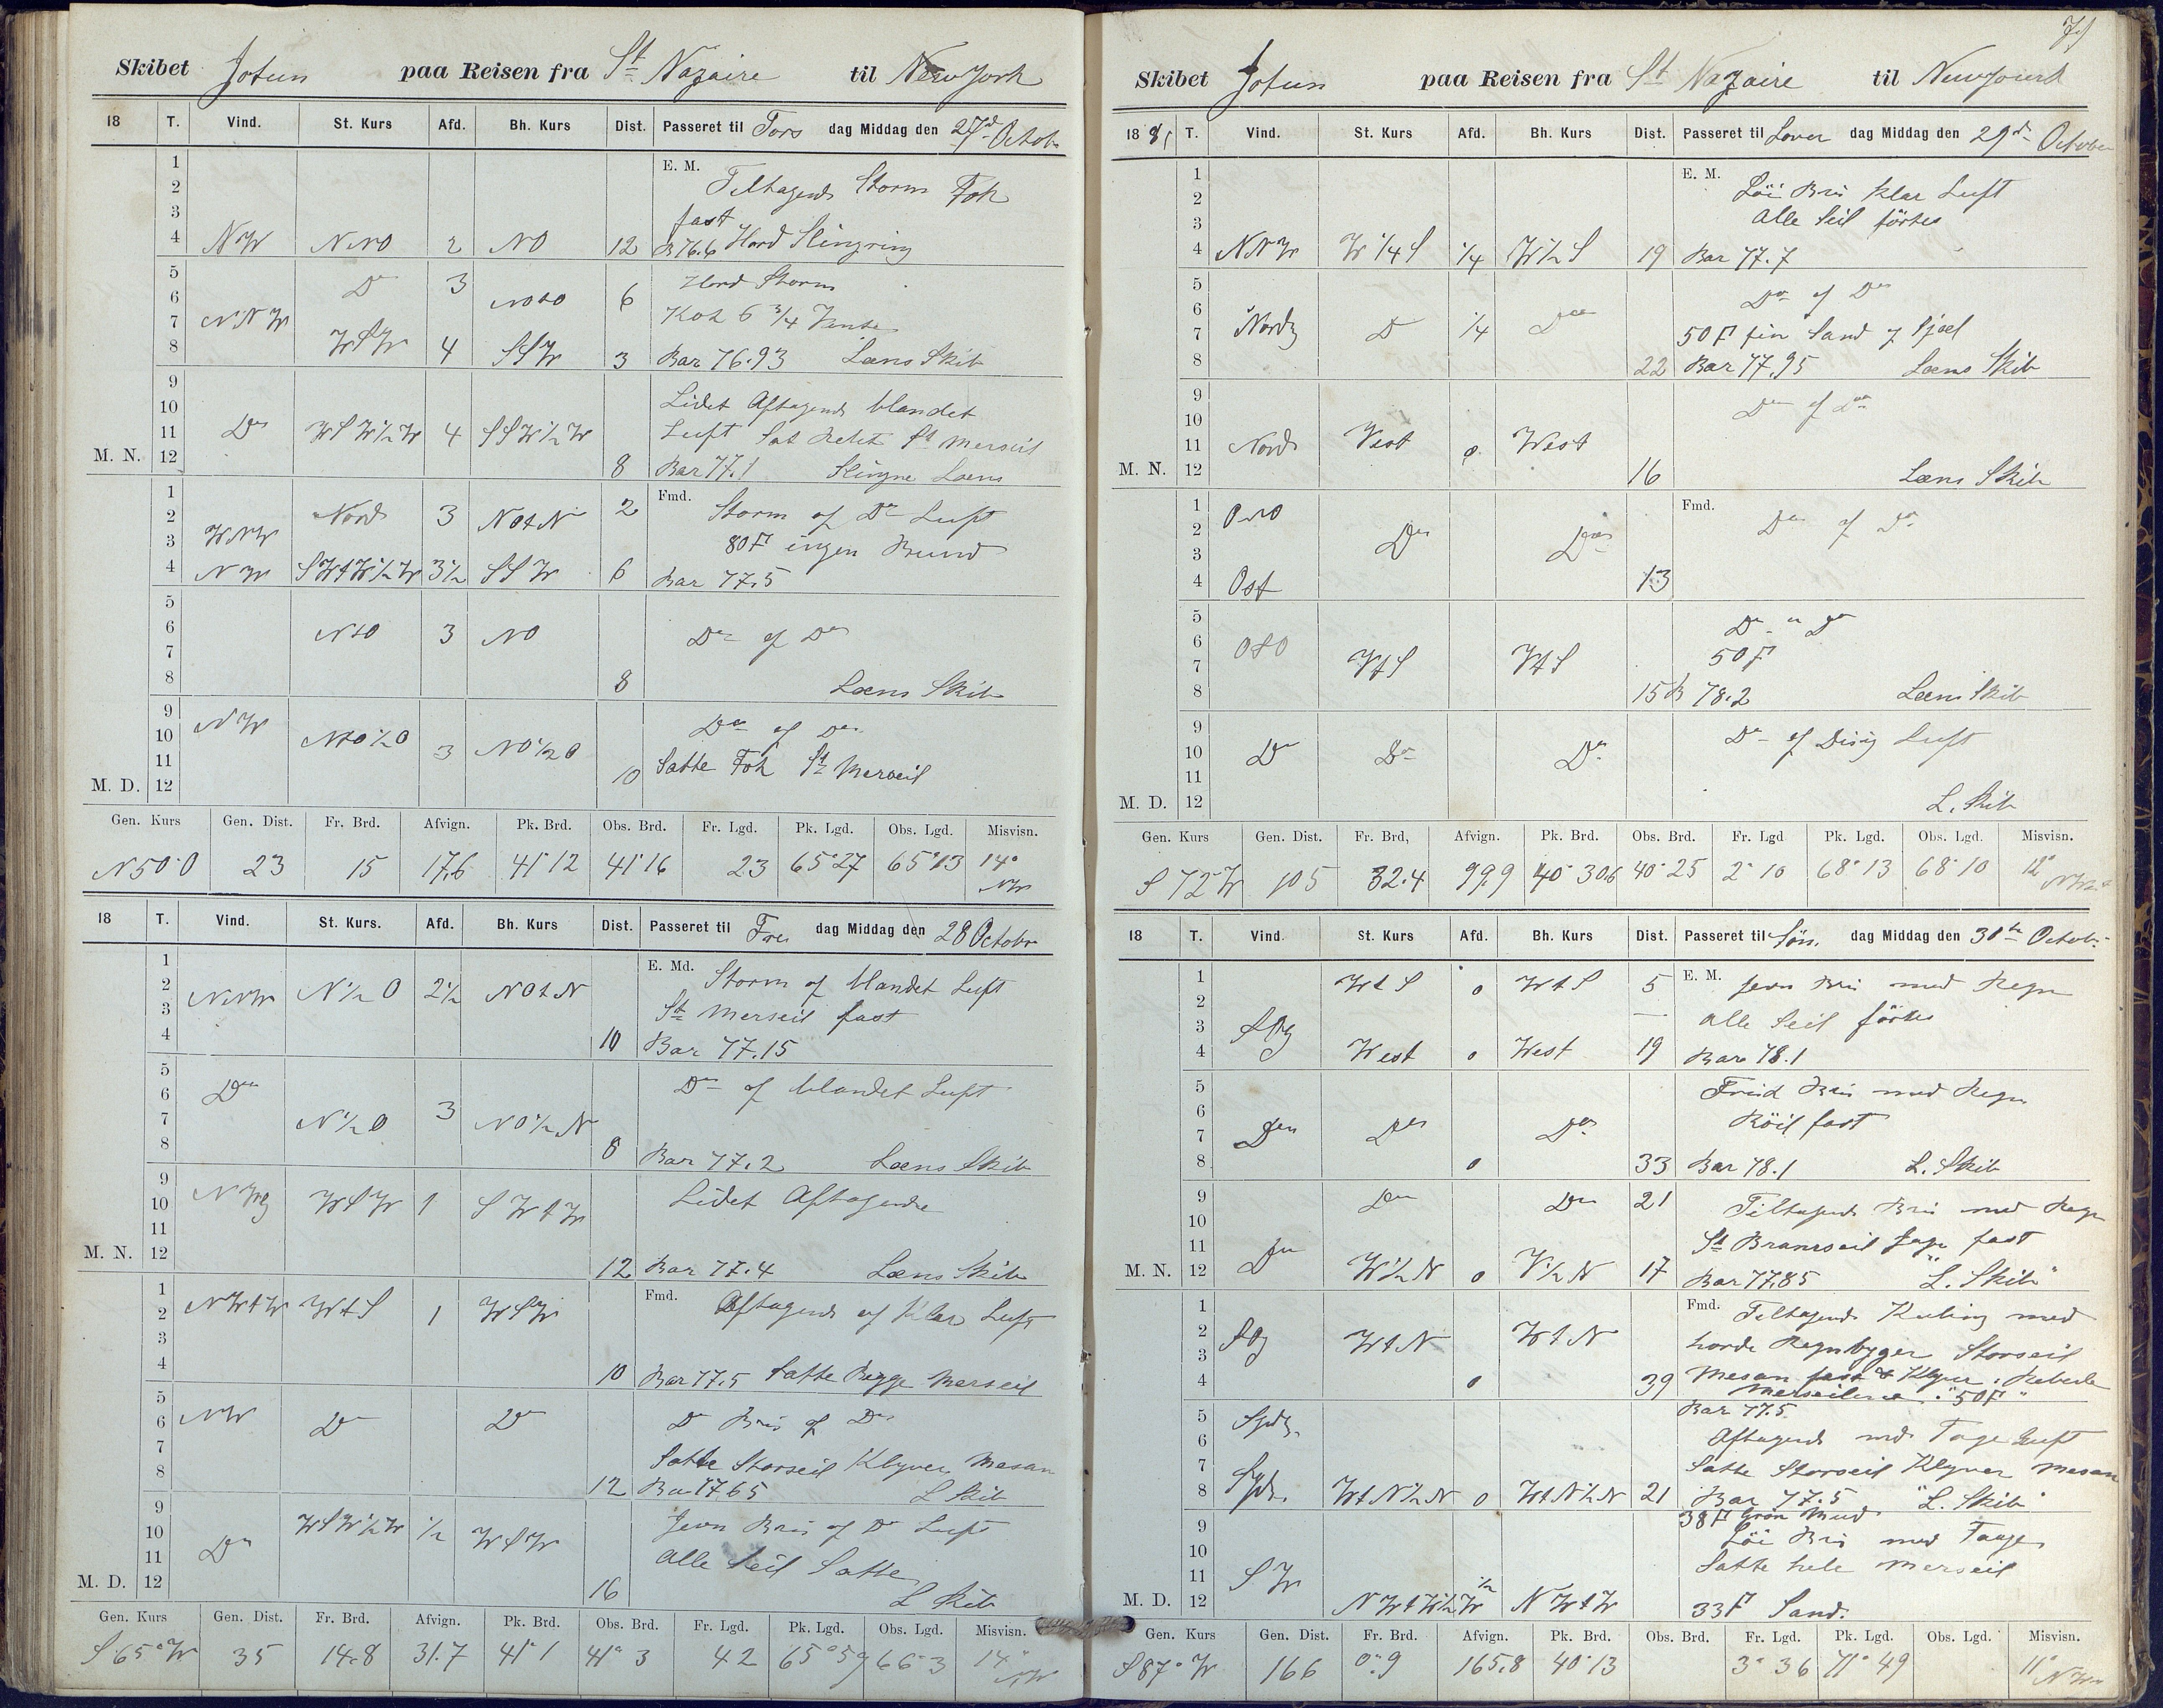 Skibet Jotun paa Reisen fra St Nazaire til New York
18 T. Vind. St. Kurs Afd. Bh. Kurs Dist. Passeret til Tors dag Middag den 27d Octob
1 E. M.
2 Tiltagende Storm Fok
3 fast
4 NW NNO 2 NO 12 B 76.6 Hard Slingring
5 Do 3 Hard Storm
6 6
7 NNW Kok 6 3/4 Vente
8 WSW 4 SSW 3 Bar 76.93 Læns Skib
9 Lidet Aftagende blandet
10 Luft
11 Do WSW½W 4 SSW½W St Merseil
M. N. 12 8 Bar 77.1 Læns
1 Fmd.
2 Nord 3 NOtN 2 Storm og Do Luft
3 WNW 80 F ingen Bund
4 NW SWtW½W 3½ SSW 6 Bar 77.5
5
6 NtO 3 NO Do og Do
7
8 8 Læns Skib
9 NW Do og Do
10 NtO½O 3 NO½O
11 Satte Fok St Merseil
M. D. 12 10
Gen. Kurs Gen. Dist. Fr. Brd. Afvign. Pk. Brd. Obs. Brd. Fr. Lgd. Pk. Lgd. Obs. Lgd. Misvisn.
N50°O 23 15 17.6 41°12 41°16 23 65°27 65°13 14° NW
18 T. Vind. St. Kurs. Afd. Bh. Kurs Dist. Passeret til Fre dag Middag den 28 Octobr
1 E. Md.
2 NNW N½O 2½ NOtN Storm og blandet Luft
3 St Merseil fast
4 10 Bar 77.15
5 Do og blandet Luft
6 Do
7 N½O 3 NO½N
8 8 Bar 77.2 Læns Skib
9 Lidet Aftagende
10 NWg WSW 1 SWtW
11
M. N. 12 12 Bar 77.4 Læns Skib
1 Fmd.
2 NWtW WtS 1 WSW Aftagende og Klar Luft
3
4 10 Bar 77.5 Satte Begge Merseil
5
6 NW Do Do Do Bris og Do
7 Satte Storseil Klyver Mesan
8 12 Bar 77 65 L Skib
9 Jevn Bris og Do Luft
10 WSW½W ½ WSW
11 Do Alle Seil Satte
M. D. 12 16 L Skib
Gen. Kurs Gen. Dist. Fr. Brd. Afvign. Pk. Brd. Obs. Brd. Fr. Lgd. Pk. Lgd. Obs. Lgd. Misvisn.
S65°W 35 14.8 31.7 41°1 41°3 42 65°59 66°3 14° NW
Skibet Jotun paa Reisen fra St Nazaire til
18 81 T. Vind. St. Kurs Afd. Bh. Kurs Dist. Passeret til Lover dag Middag den 29de October
1 E. M.
2 Löi Bris klar Luft
3 Alle Seil förtes
4 NNW W¼S ¼ W½S 19 Bar 77.7
5 Do og Do
6
7 Nordg Do ¼ Do 50 F fin Sand og Sjæl
8 22 Bar 77.95 Læns Skib
9 Do og Do
10
11 Nord Vest 0 West
M. N. 12 16 Læns Skib
1 Fmd.
2 ONO Do og Do
3 Do Do
4 Ost 13
5 Do " Do
6 OSO 50 F
7 WtS WtS
8 15 B 78.2 Læns Skib
9 Do og Disig Luft
10 Do Do Do
11
M. D. 12 L. Skib
Gen. Kurs Gen. Dist. Fr. Brd, Afvign. Pk. Brd. Obs. Brd. Fr. Lgd Pk. Lgd. Obs. Lgd. Misvisn.
S72°W 105 32.4 99.9 40°30.6 40°25 2°10 68°13 68°10 12°
18 T. Vind. St. Kurs Afd. Bh. Kurs Dist. Passeret til Sön. dag Middag den 30te Octob.
1 WtS 0 WtS 5 E. M. Jevn Bris med Regn
2
3 alle Seil förtes
4 West 0 West 19 Bar 78.1
5 Frisk Bris med Regn
6
7 Do Do Do Röil fast
8 0 33 Bar 78.1 L. Skib
9 Do Do 21 Tiltagende Bris med Regn
10
11 Do St Bramseil Jager fast
M. N. 12 W½N 0 V½N 17 Bar 77.85 "L. Skib"
1 Fmd. Tiltagende Kuling med
2 WtN WtN
3 harde Regnbyger Storseil
4 0 39 Mesan fast & Klyver. Rebede
Merseilene. "50 F"
5 Sydg. Bar 77.5
6 Aftagende med Taage Luft
7 Satte Storseil Klyver Mesan
8 Syd. WtN½N 0 WtN½N 21 Bar 77.5 "L. Skib"
9 38 F Grön Mud
10 Löi Bris med Taage
11 SW ½ Satte hele Merseil
M. D. 12 NWtW½W NWtW 33 F Sand.
Gen. Kurs Gen. Dist. Fr. Brd. Afvign. Pk. Brd. Obs. Brd. Fr. Lgd. Pk. Lgd. Obs. Lgd. Misvisn.
S87°W 166 0°.9 165.8 40°13 3°36 71°49 11°